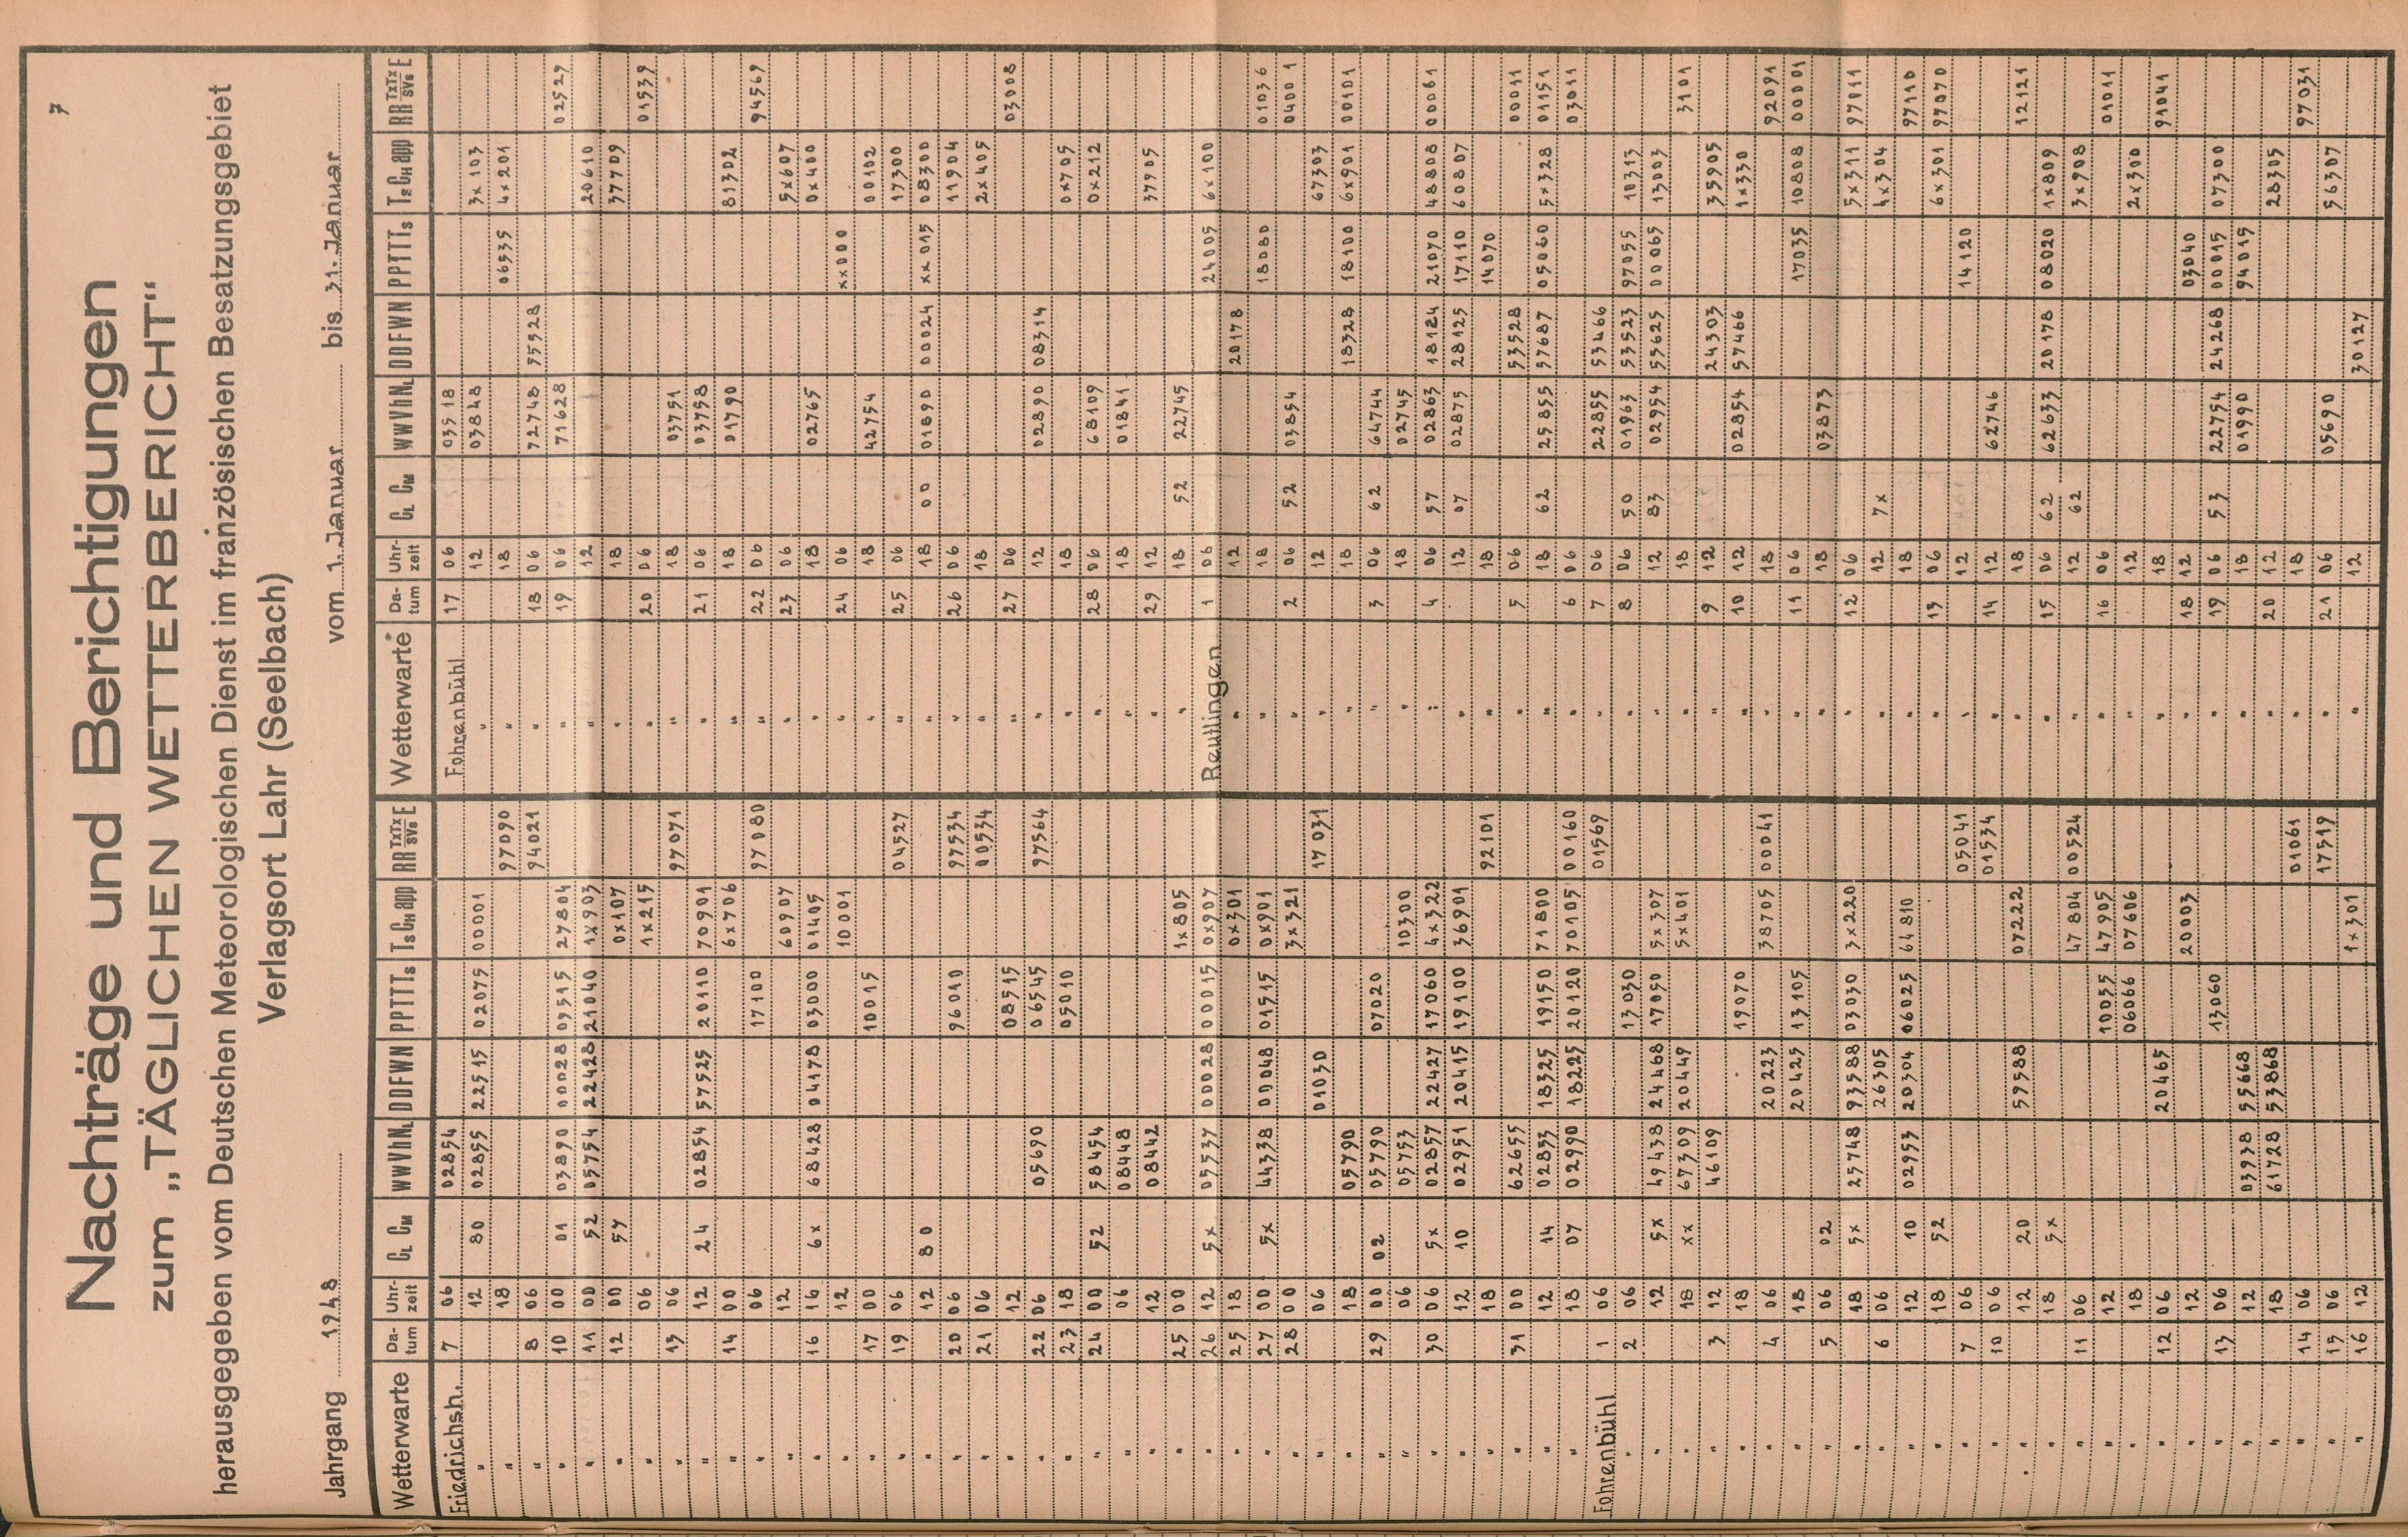 7
Nachträge und Berichtigungen
zum „TÄGLICHEN WETTERBERICHT“
herausgegeben vom Deutschen Meteorologischen Dienst im französischen Besatzungsgebiet
Verlagsort Lahr (Seelbach)
Jahrgang 1948 vom 1. Januar bis 31. Januar
Wetterwarte Da-tum Uhr-zeit CL CM wwVhNL DDFWN PPTTTs TsCH app RR TxTx/SVs E
Friedrichsh. 7 06 02854
" 12 80 02855 22515 02075 00001
" 18 97090
" 8 06 94021
" 10 00 01 03890 00028 03515 27804
" 11 00 52 05754 22428 21040 1x903
" 12 00 57 0x107
" 06 1x215
" 13 06 97071
" 12 24 02854 57525 20110 70901
" 14 00 6x706
" 06 17100 97080
" 12 60907
" 16 16 6x 68428 04178 03000 01405
" 12 10001
" 17 00 10015
" 19 06 04527
" 12 80
" 20 06 96010 97534
" 21 06 00534
" 12 08515
" 22 06 05690 06545 97564
" 23 18 05010
" 24 00 52 58454
" 06 08448
" 12 08442
" 25 00 1x805
" 26 12 5x 05537 00028 00015 0x907
" 25 18 0x301
" 27 00 5x 44338 00048 01515 0x901
" 28 00 3x321
" 06 01030 17031
" 18 05790
" 29 00 02 05790 07020
" 06 05753 10300
" 30 06 5x 02857 22427 17060 4x322
" 12 10 02951 20415 19100 36901
" 18 92101
" 31 00 62655
" 12 14 02833 18325 19150 71800
" 18 07 02990 18225 20120 70105 00160
Fohrenbühl 1 06 01569
" 2 06 13030
" 12 5x 49438 21468 17050 5x307
" 18 xx 67309 20449 5x401
" 3 12 46109
" 18 19070
" 4 06 20223 38705 00041
" 18 20425 13105
" 5 06 02
" 18 5x 25748 93588 03030 3x220
" 6 06 26305
" 12 10 02953 20304 06025 64810
" 18 52
" 7 06 05041
" 10 06 01534
" 12 20 59588 07222
" 18 5x
" 11 06 47804 00524
" 12 10035 47905
" 18 06066 07606
" 12 06 20465
" 12 20003
" 13 06 13060
" 12 03938 55668
" 18 61728 53868
" 14 06 01061
" 15 06 17519
" 16 12 1x301
Wetterwarte Da-tum Uhr-zeit CL CM wwVhNL DDFWN PPTTTs TsCH app RR TxTx/SVs E
Fohrenbühl 17 06 03518
" 12 03848 3x103
" 18 06535 4x201
" 18 06 72748 55528
" 19 06 71628 02529
" 12 20610
" 18 37709
" 20 06 01539
" 18 03751
" 21 06 03758
" 18 01790 81302
" 22 06 94569
" 23 06 5x607
" 18 02765 0x400
" 24 06 xx000
" 18 42754 00102
" 25 06 17300
" 18 00 01890 00024 xx015 08300
" 26 06 11904
" 18 2x405
" 27 06 03008
" 12 02890 08314
" 18 0x705
" 28 06 68109 0x212
" 18 01841
" 29 12 37905
" 18 52 22745
Reutlingen 1 06 24005 6x100
" 12 20178
" 18 18080 01036
" 2 06 52 02854 04001
" 12 67303
" 18 18328 18100 6x901 00101
" 3 06 62 64744
" 18 02745
" 4 06 57 02863 18124 21070 48808 00061
" 12 07 02875 28125 17110 60807
" 18 14070
" 5 06 53528 00011
" 18 62 25855 57687 05060 5x328 01151
" 6 06 03011
" 7 06 22855 53466
" 8 06 50 01963 53523 97055 10313
" 12 83 02954 55625 00065 13003
" 18 3101
" 9 12 24303 35905
" 10 12 02854 57466 1x330
" 18 92091
" 11 06 17035 10808 00001
" 18 03873
" 12 06 5x311 97011
" 12 7x 4x304
" 18 97110
" 13 06 6x301 97070
" 12 14120
" 14 12 62746
" 18 12121
" 15 06 62 62633 20178 08020 1x809
" 12 62 3x908
" 16 06 01011
" 12 2x300
" 18 91041
" 18 12 03040
" 19 06 53 22754 24268 00015 07300
" 18 01990 94015
" 20 12 28305
" 18 97031
" 21 06 05690 56307
" 12 30127